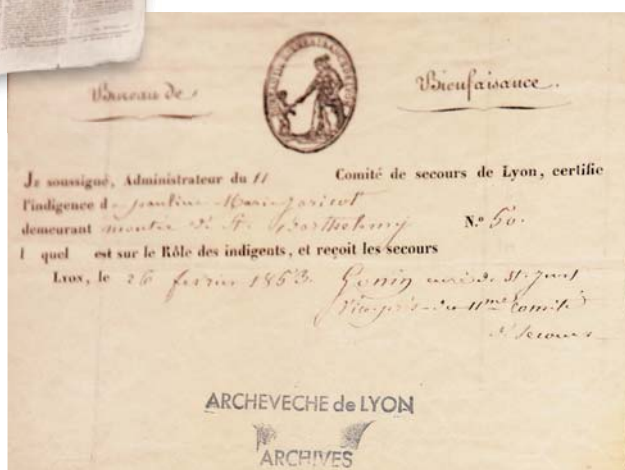 Bureau de Bienfaisance.
Je soussigné, Administrateur du 11 Comité de secours de Lyon, certifie
l'indigence d pauline Marie jaricot
demeurant montée de St. Barthelemy N.º 50.
l quel est sur le Rôle des indigents, et reçoit les secours
Lyon, le 26 fevrier 1853. Gonin curé de St. Just
du 11me Comité
de Secours
ARCHEVECHE de LYON
ARCHIVES